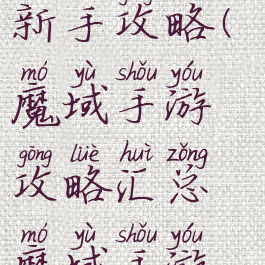 新手攻略(
mó yù shǒu yóu
魔域手游
gōng lüè huì zǒng
攻略汇总
mó yù shǒu yóu
魔域手游